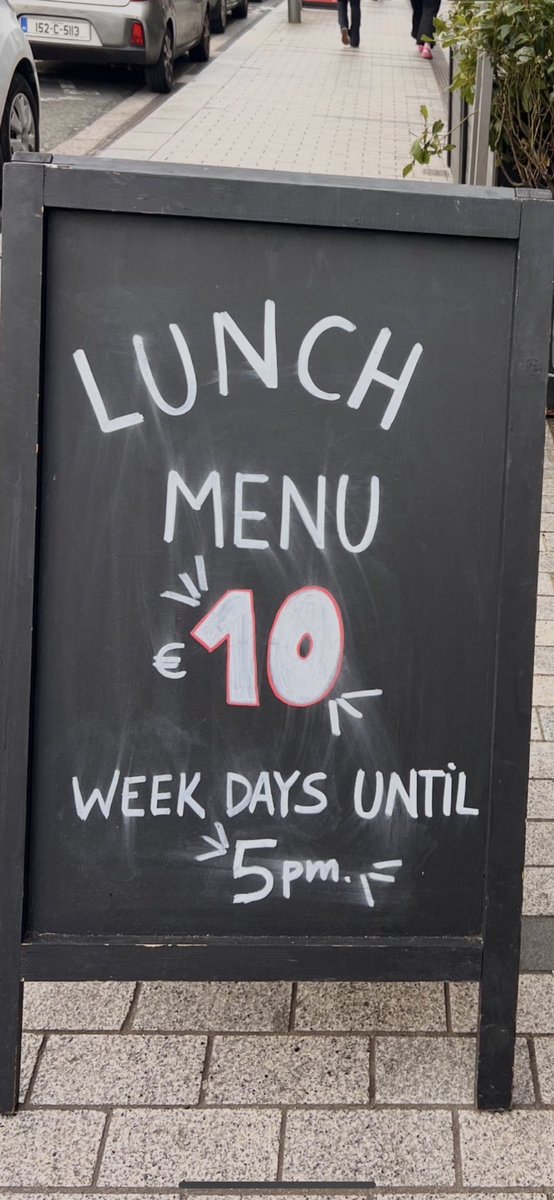 152-C-5113
LUNCH
MENU
€10
WEEK DAYS UNTİL
5pm.